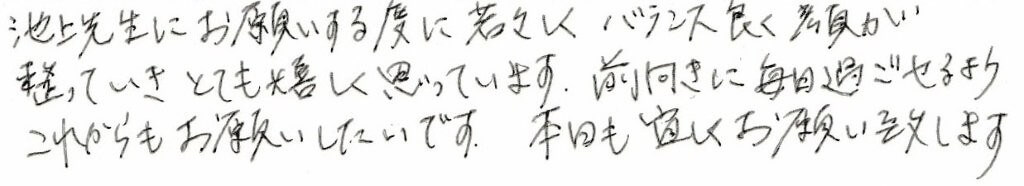 池上先生にお願いする度に若々しく バランス良く 顔が
整っていき とても嬉しく思っています. 前向きに毎日過ごせるよう
これからもお願いしたいです. 本日も宜しくお願い致します